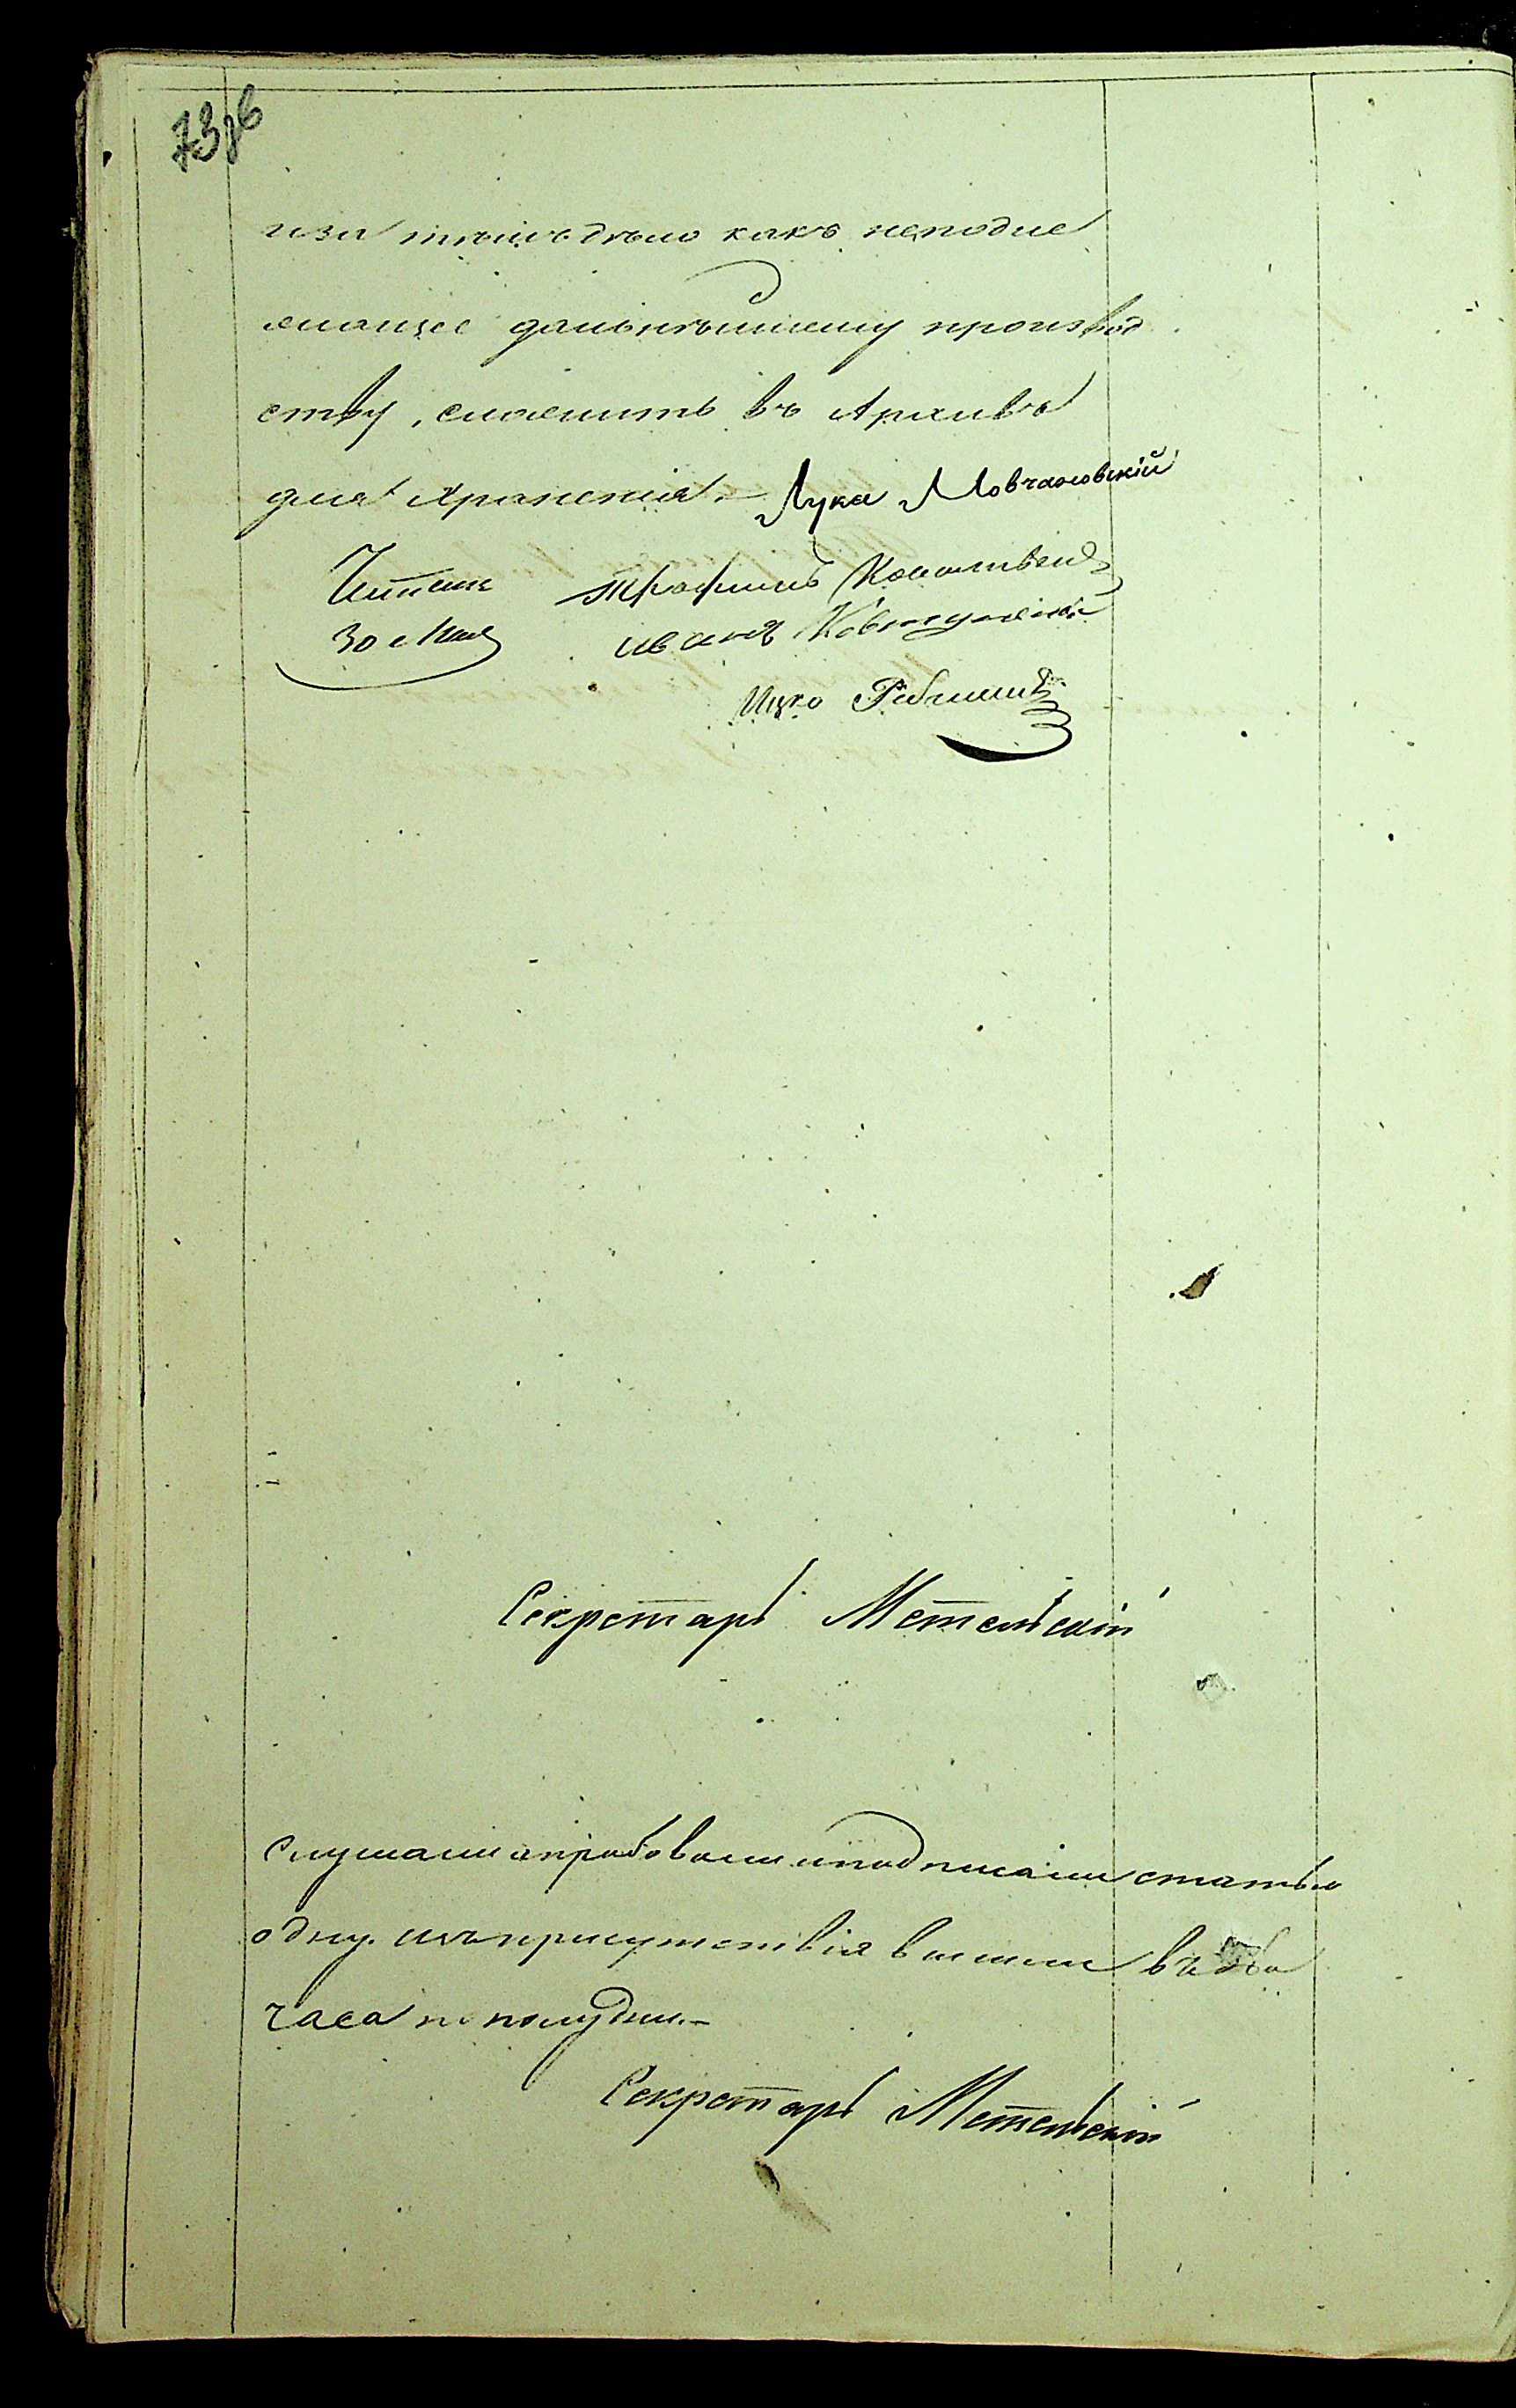 73 об
и за тѣмъ дѣло какъ неподле
жащее дальнѣйшему производ
ству, сложить въ Архивъ
для храненія. — Лука Мовчановскій
Читалъ Трофимъ
30 Мая иванъ
Ицко
Секретарь Метельскій
Слушали апробовали и подписали статью
одну. изъ присутствія вышли въ два
часа по полудни. —
Секретарь Метельскій